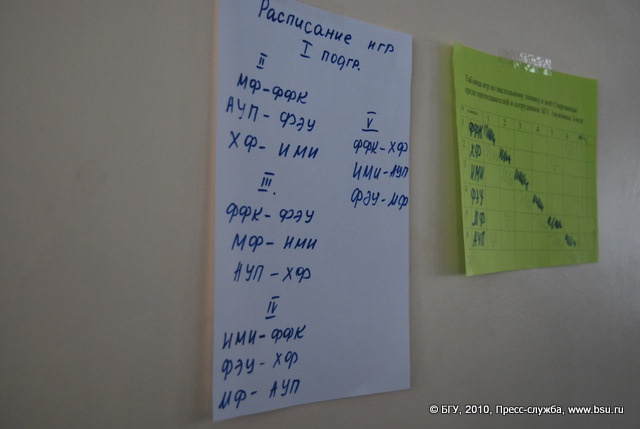 Расписание игр
I подгр.
II
МФ-ФФК
АУП-ФЭУ
ХФ-ИМИ
III.
ФФК-ФЭУ
МФ-ИМИ
АУП-ХФ
IV
ИМИ-ФФК
ФЭУ-ХФ
МФ-АУП
V
ФФК-ХФ
ИМИ-АУП
ФЭУ-МФ
Таблица игр по настольному теннису в зачёт Спартакиады
среди преподавателей и сотрудников БГУ
ФФК
ХФ
ИМИ
ФЭУ
МФ
АУП
© БГУ, 2010, Пресс-служба, www.bsu.ru